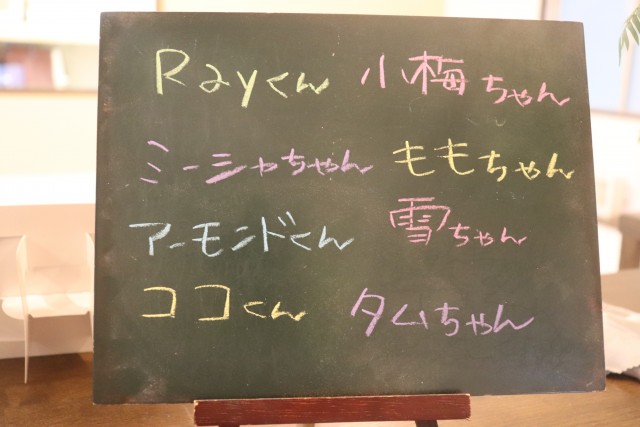 Rayくん 小梅ちゃん
ミーシャちゃん ももちゃん
アーモンドくん 雪ちゃん
ココくん タムちゃん